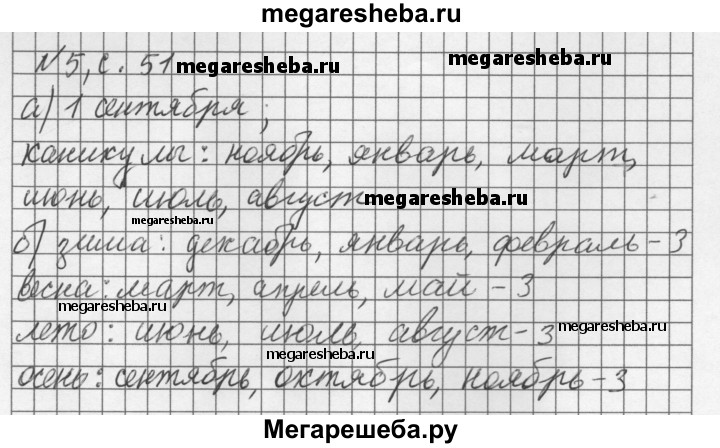 megaresheba.ru
№5, с. 51 megaresheba.ru megaresheba.ru
а) 1 сентября;
каникулы: ноябрь, январь, март,
июнь, июль, август megaresheba.ru
megaresheba.ru
б) зима: декабрь, январь, февраль - 3
весна: март, апрель, май - 3
megaresheba.ru
лето: июнь, июль, август - 3 megaresheba.ru
megaresheba.ru
осень: сентябрь, октябрь, ноябрь - 3
Мегарешеба.ру